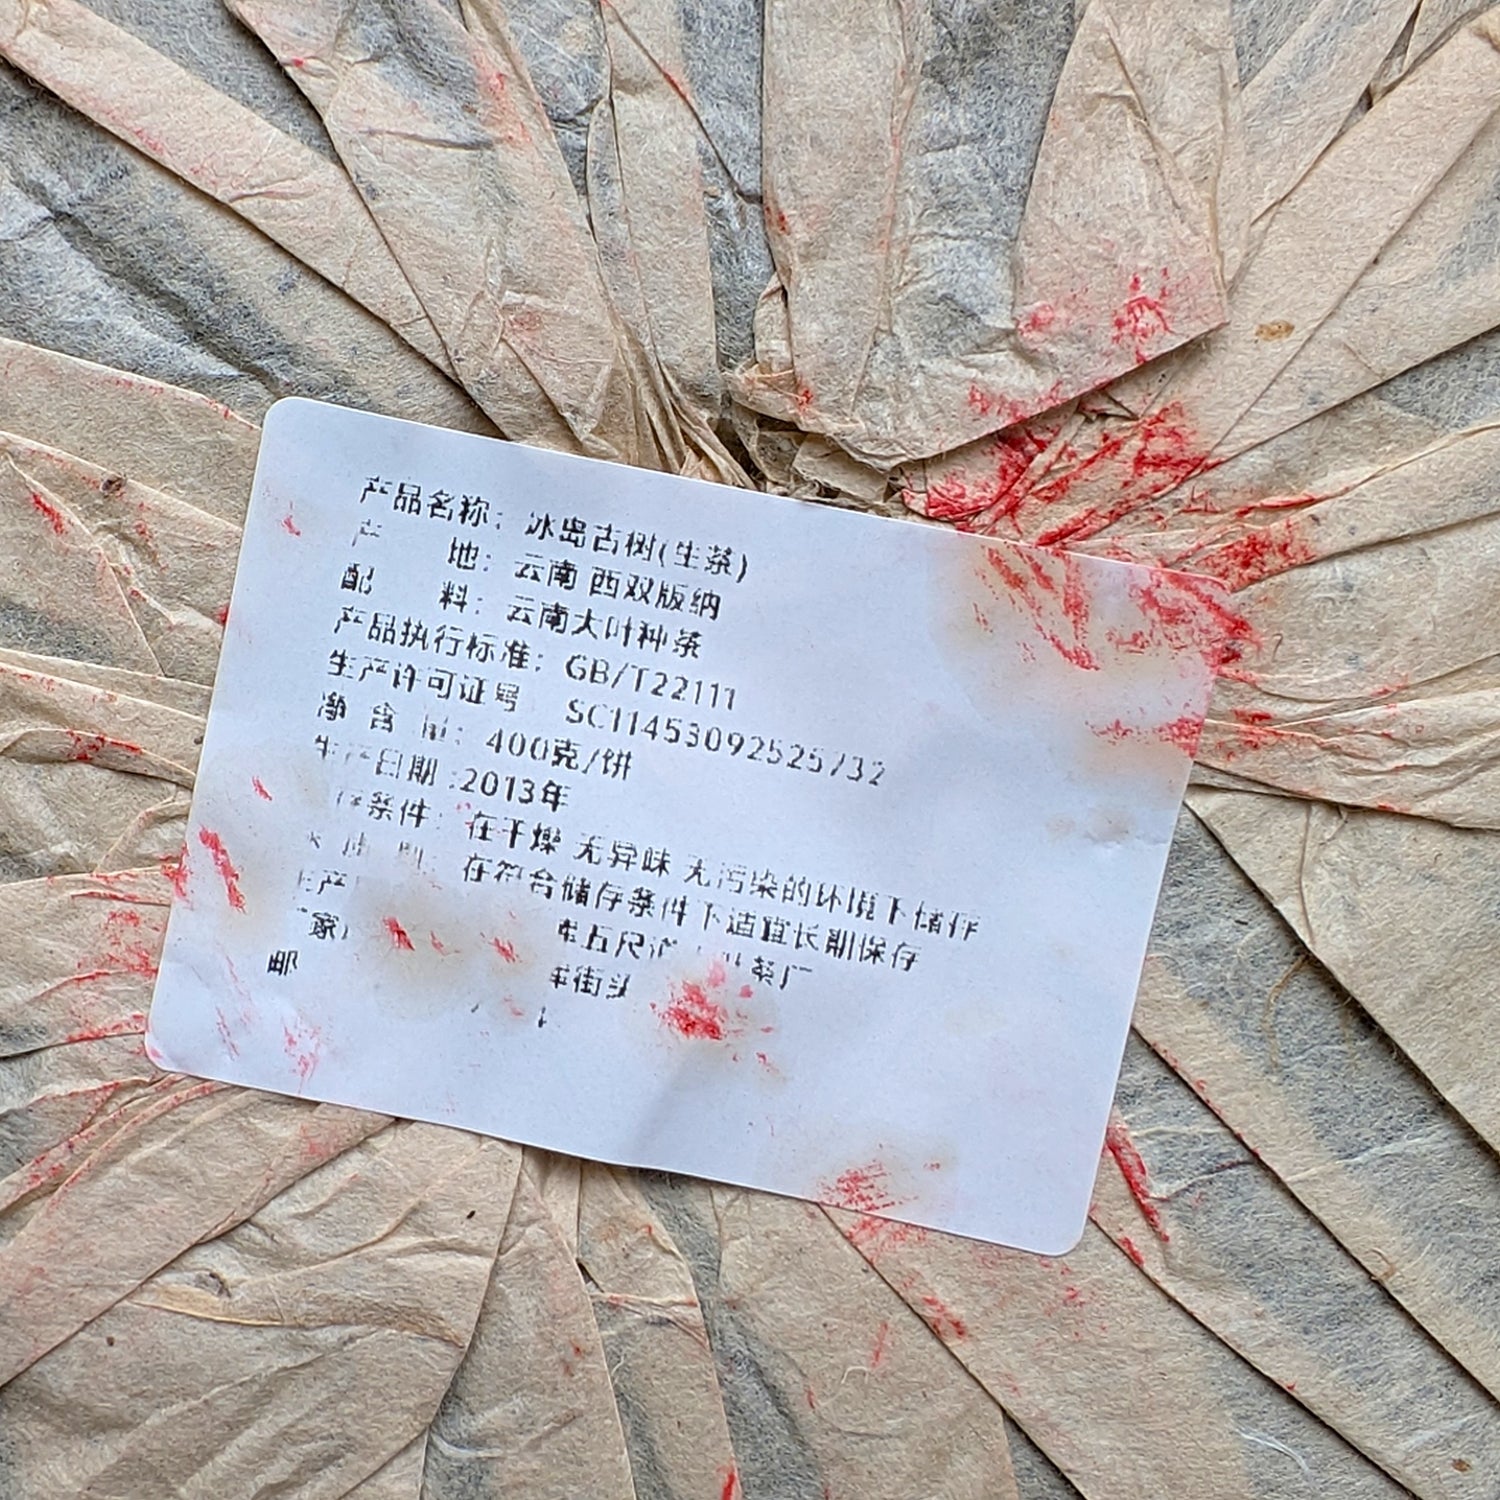 产品名称：冰岛古树(生茶)
产地：云南 西双版纳
配料：云南大叶种茶
产品执行标准：GB/T22111
生产许可证号 SC11453092525732
净含量：400克/饼
生产日期：2013年
存条件：在干燥 无异味 无污染的环境下储存
在符合储存条件下适宜长期保存
产 五尺 茶厂
家 街头
邮